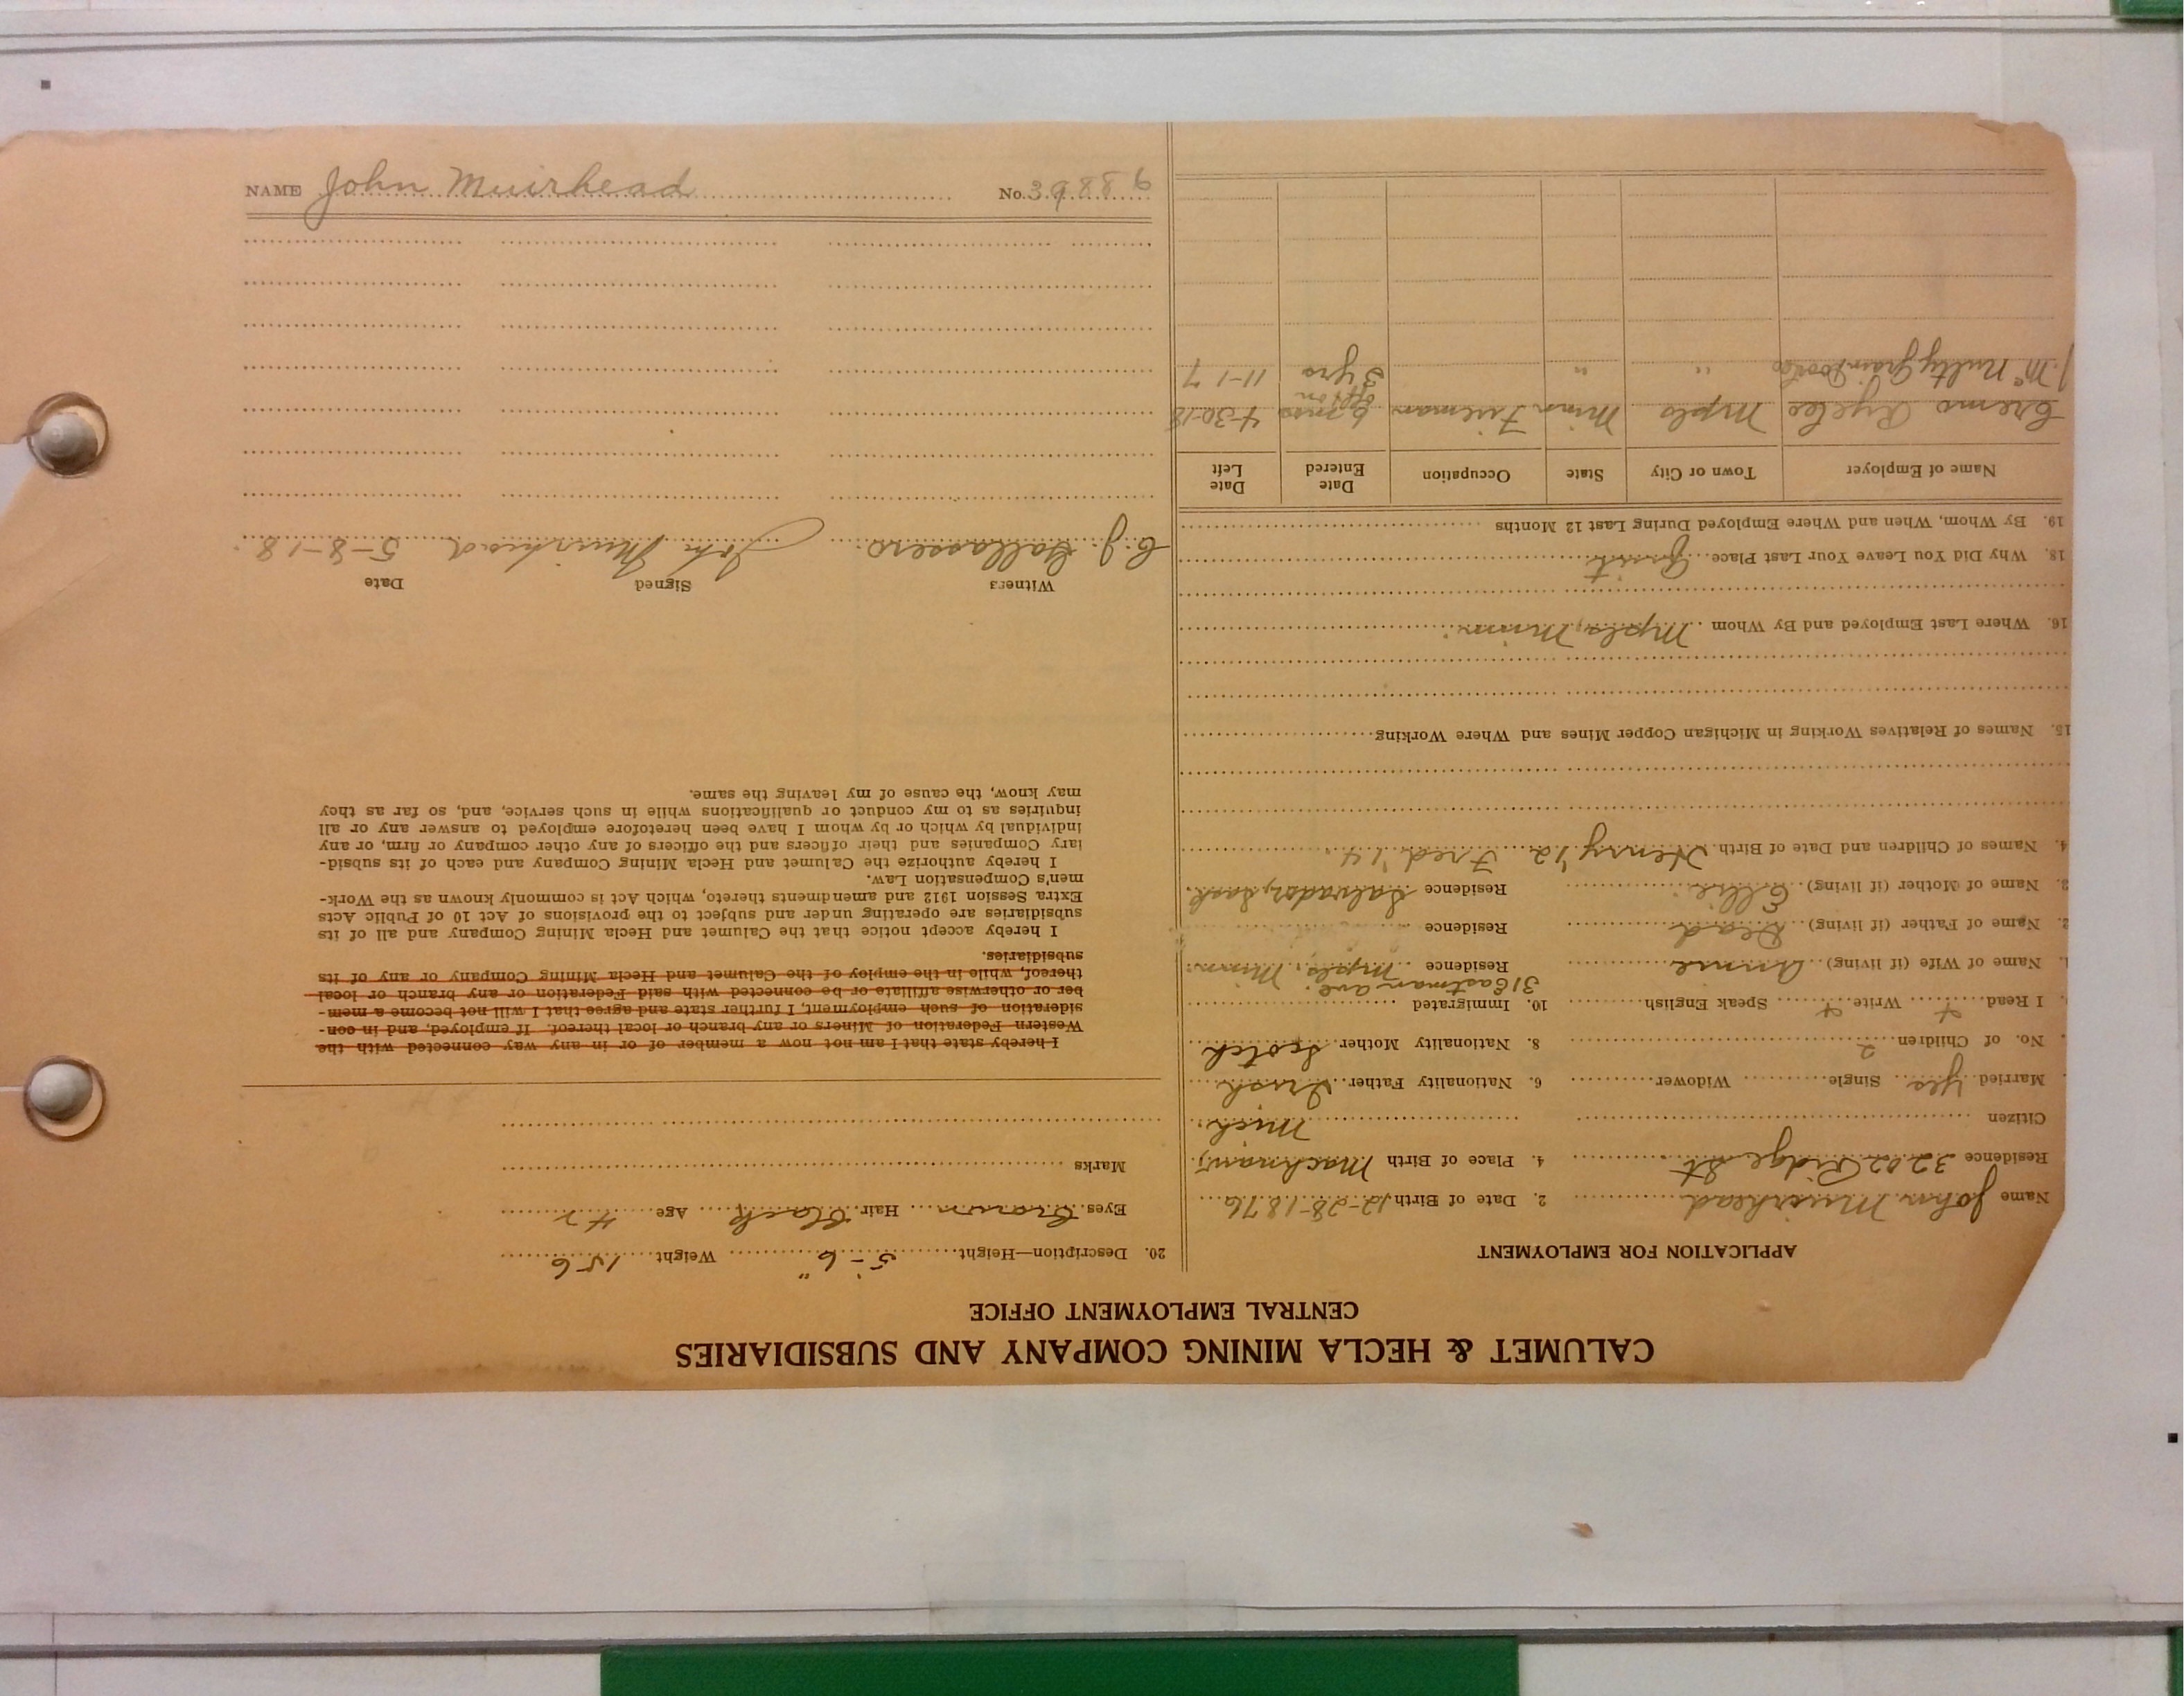 CALUMET & HECLA MINING COMPANY AND SUBSIDIARIES
CENTRAL EMPLOYMENT OFFICE
APPLICATION FOR EMPLOYMENT
Name John Muirhead 2. Date of Birth 12-28-1876
Residence 3202 Ridge St 4. Place of Birth
Citizen Mich.
Married Yes Single Widower 6. Nationality Father Irish
No. of Children 2 8. Nationality Mother Scotch
I Read Write Speak English 10. Immigrated
31 Eastman ave.
1. Name of Wife (if living) Annie Residence Mpls, Minn.
2. Name of Father (if living) Dead Residence
3. Name of Mother (if living) Ellie Residence Salvador, Sask.
4. Names of Children and Date of Birth Henry '12 Fred '14
15. Names of Relatives Working in Michigan Copper Mines and Where Working
16. Where Last Employed and By Whom Mpls, Minn.
18. Why Did You Leave Your Last Place Quit
19. By Whom, When and Where Employed During Last 12 Months
Name of Employer Town or City State Occupation Date Entered Date Left
Mpls Minn Fireman 6 mos off & on 4-30-18
Mc Nulty Grain Door Co " " 3 yrs 11-1-7
20. Description—Height 5'-6" Weight 156
Eyes Brown Hair Black Age 42
Marks
I hereby state that I am not now a member of or in any way connected with the
Western Federation of Miners or any branch or local thereof. If employed, and in con-
sideration of such employment, I further state and agree that I will not become a mem-
ber or otherwise affiliate or be connected with said Federation or any branch or local
thereof, while in the employ of the Calumet and Hecla Mining Company or any of its
subsidiaries.
I hereby accept notice that the Calumet and Hecla Mining Company and all of its
subsidiaries are operating under and subject to the provisions of Act 10 of Public Acts
Extra Session 1912 and amendments thereto, which Act is commonly known as the Work-
men's Compensation Law.
I hereby authorize the Calumet and Hecla Mining Company and each of its subsid-
iary Companies and their officers and the officers of any other company or firm, or any
individual by which or by whom I have been heretofore employed to answer any or all
inquiries as to my conduct or qualifications while in such service, and, so far as they
may know, the cause of my leaving the same.
Witness Signed Date
C. J. John Muirhead 5-8-18
NAME John Muirhead No. 39886